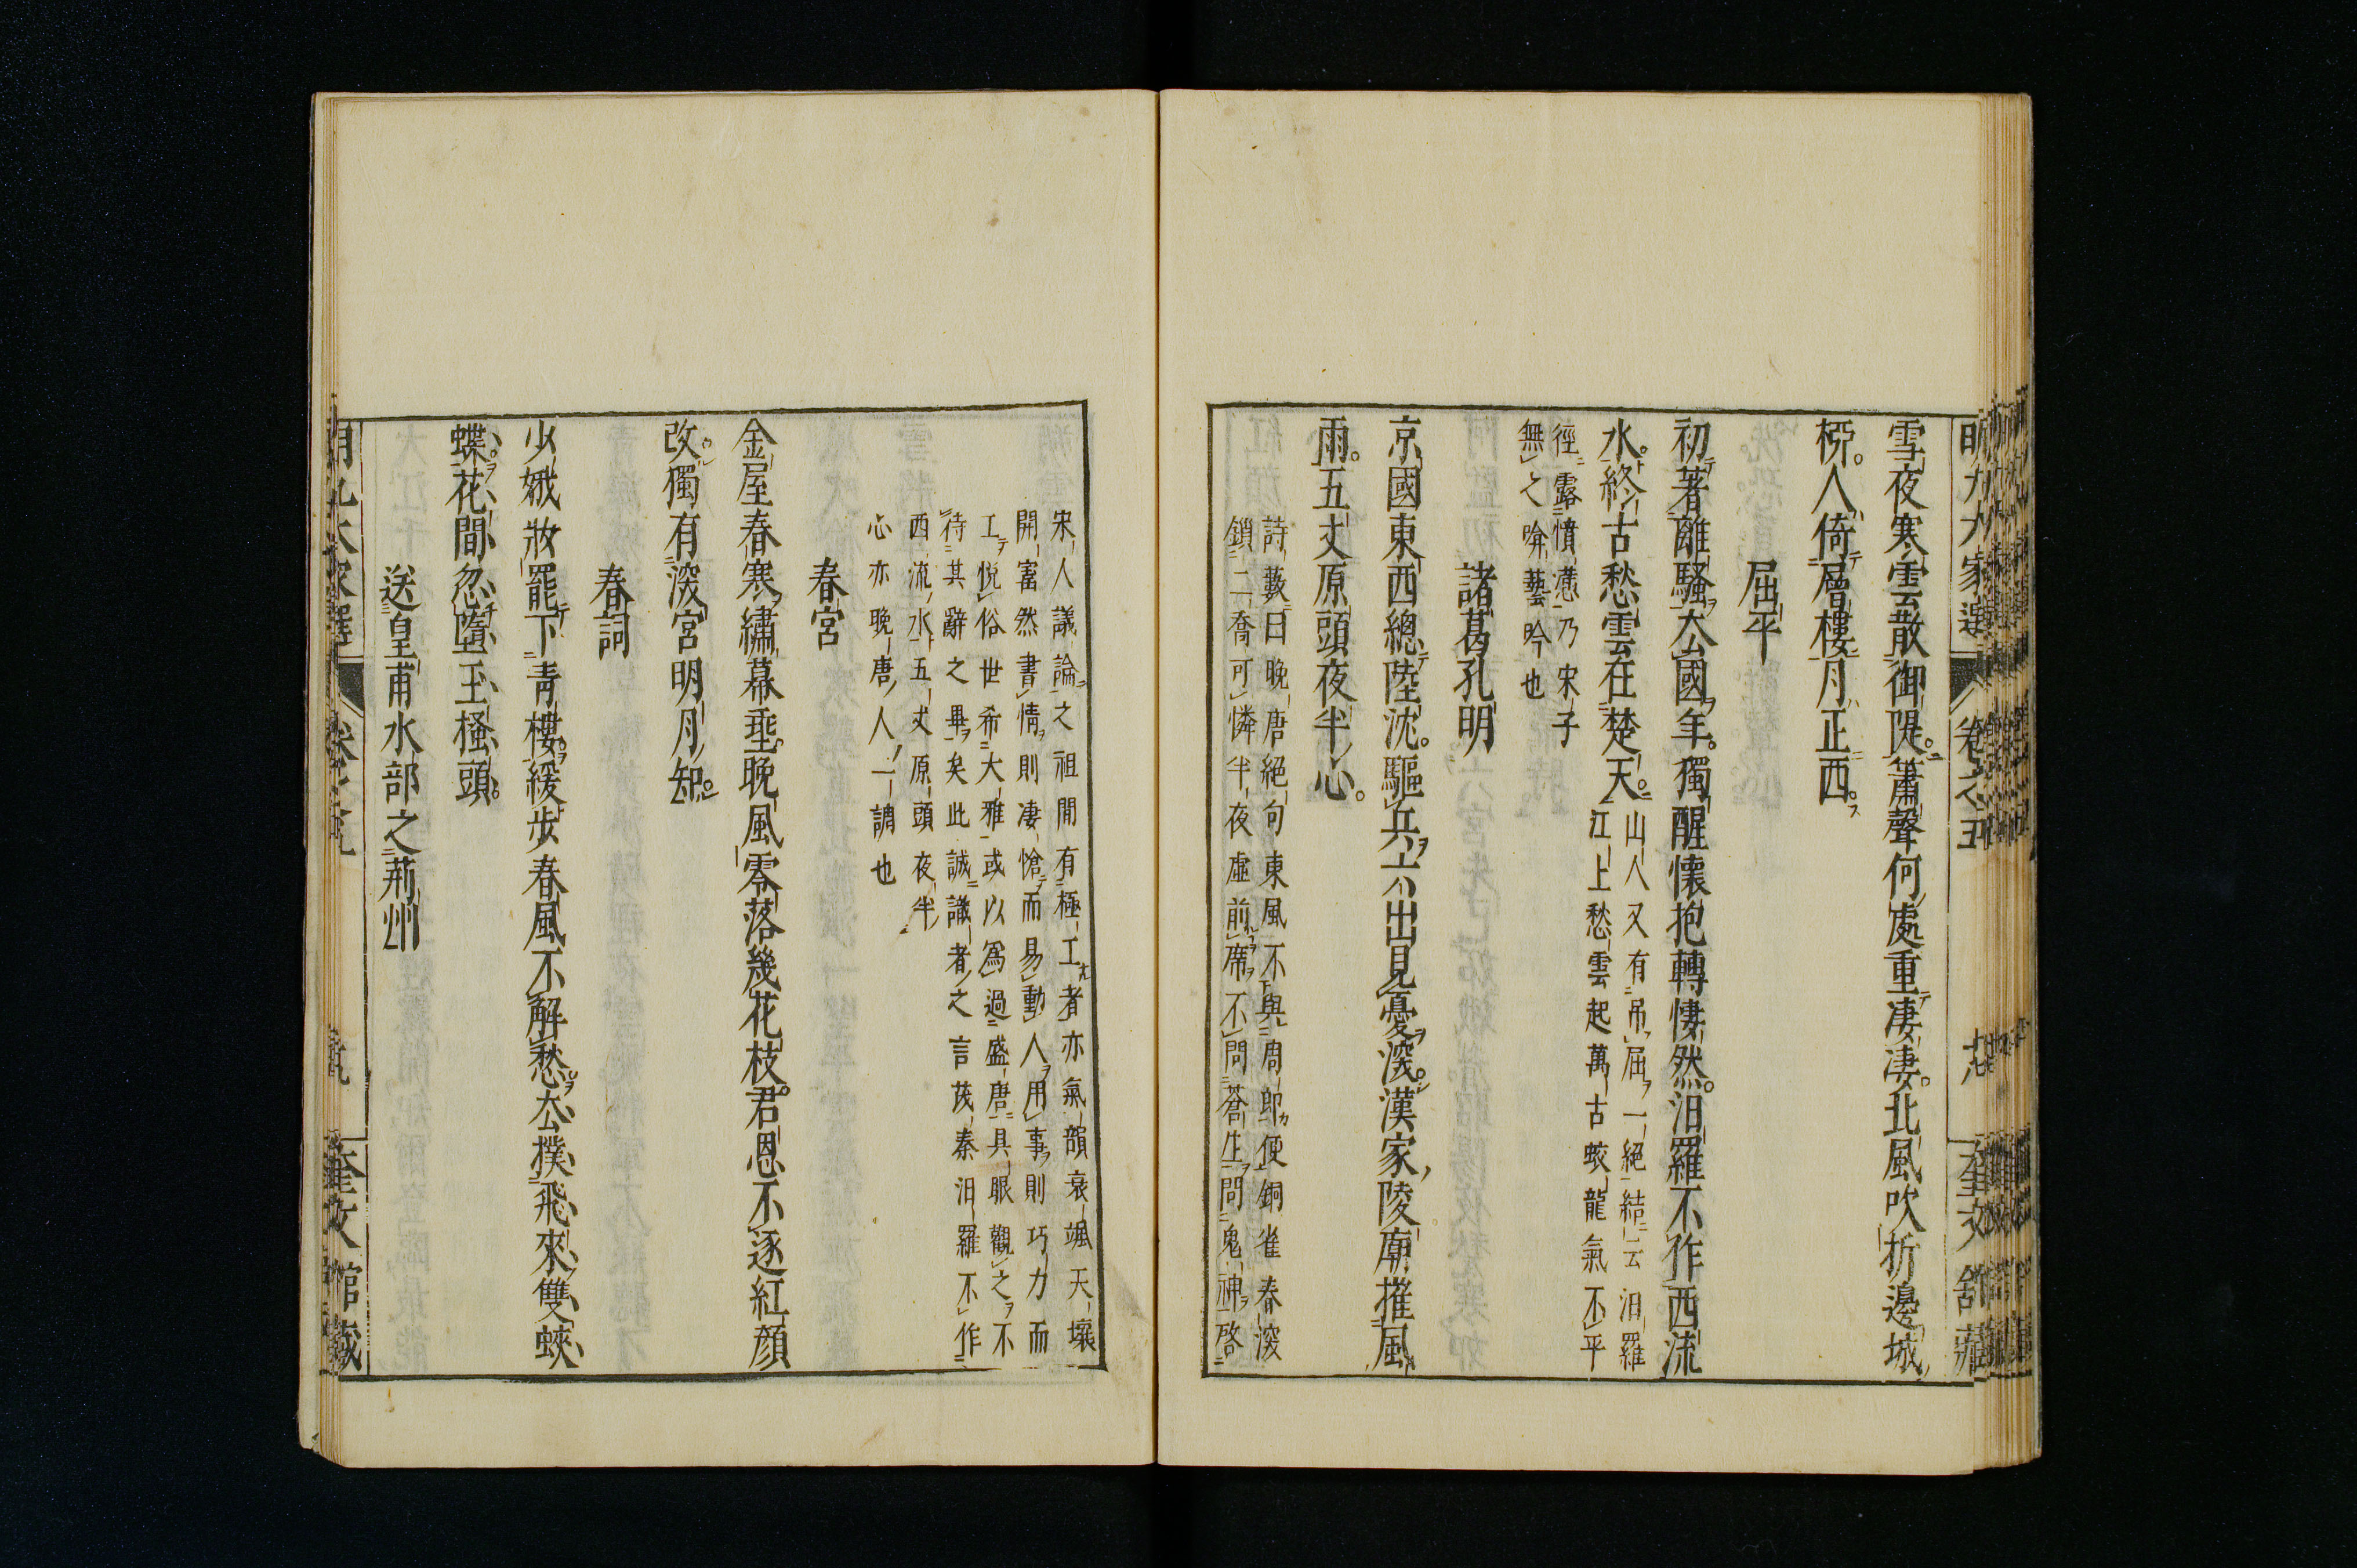 雪夜寒雲散御隄簫聲何處重凄凄北風吹折邊城
柳人倚層樓月正西
屈平
初著離騷去國年獨醒懷抱轉悽然汨羅不作西流
水終古愁雲在楚天
山人又有吊屈一絕結云汨羅
江上愁雲起萬古蛟龍氣不平
徑露憤懣乃宋子
無之喻藝吟也
諸葛孔明
京國東西總陸沈驅兵六出見憂深漢家陵廟摧風
雨五丈原頭夜半心
詩藪曰晚唐絕句東風不與周郎便銅雀春深
鎖二喬可憐半夜虛前席不問蒼生問鬼神啓
宋人議論之祖間有極工者亦氣韻衰颯天壤
開寶然書情則凄愴而易動人用事則巧力而
工悅俗世希大雅或以爲過盛唐具眼觀之不
待其辭之畢矣此誠識者之言茂秦汨羅不作
西流水五丈原頭夜半
心亦晚唐人一調也
春宮
金屋春寒繡幕垂晚風零落幾花枝君恩不逐紅顏
改獨有深宮明月知
春詞
少娥妝罷下青樓緩步春風不解愁去撲飛來雙蛺
蝶花間忽墮玉搔頭
送皇甫水部之荊州
明九大家選 卷之五 奎文館藏